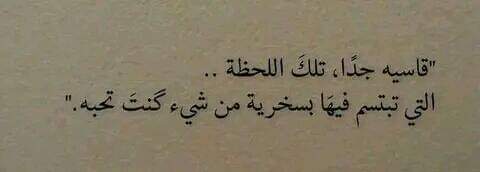 "قاسيه جدًا، تلكَ اللحظة ..
التي تبتسم فيهَا بسخرية من شيء گنتَ تحبه."